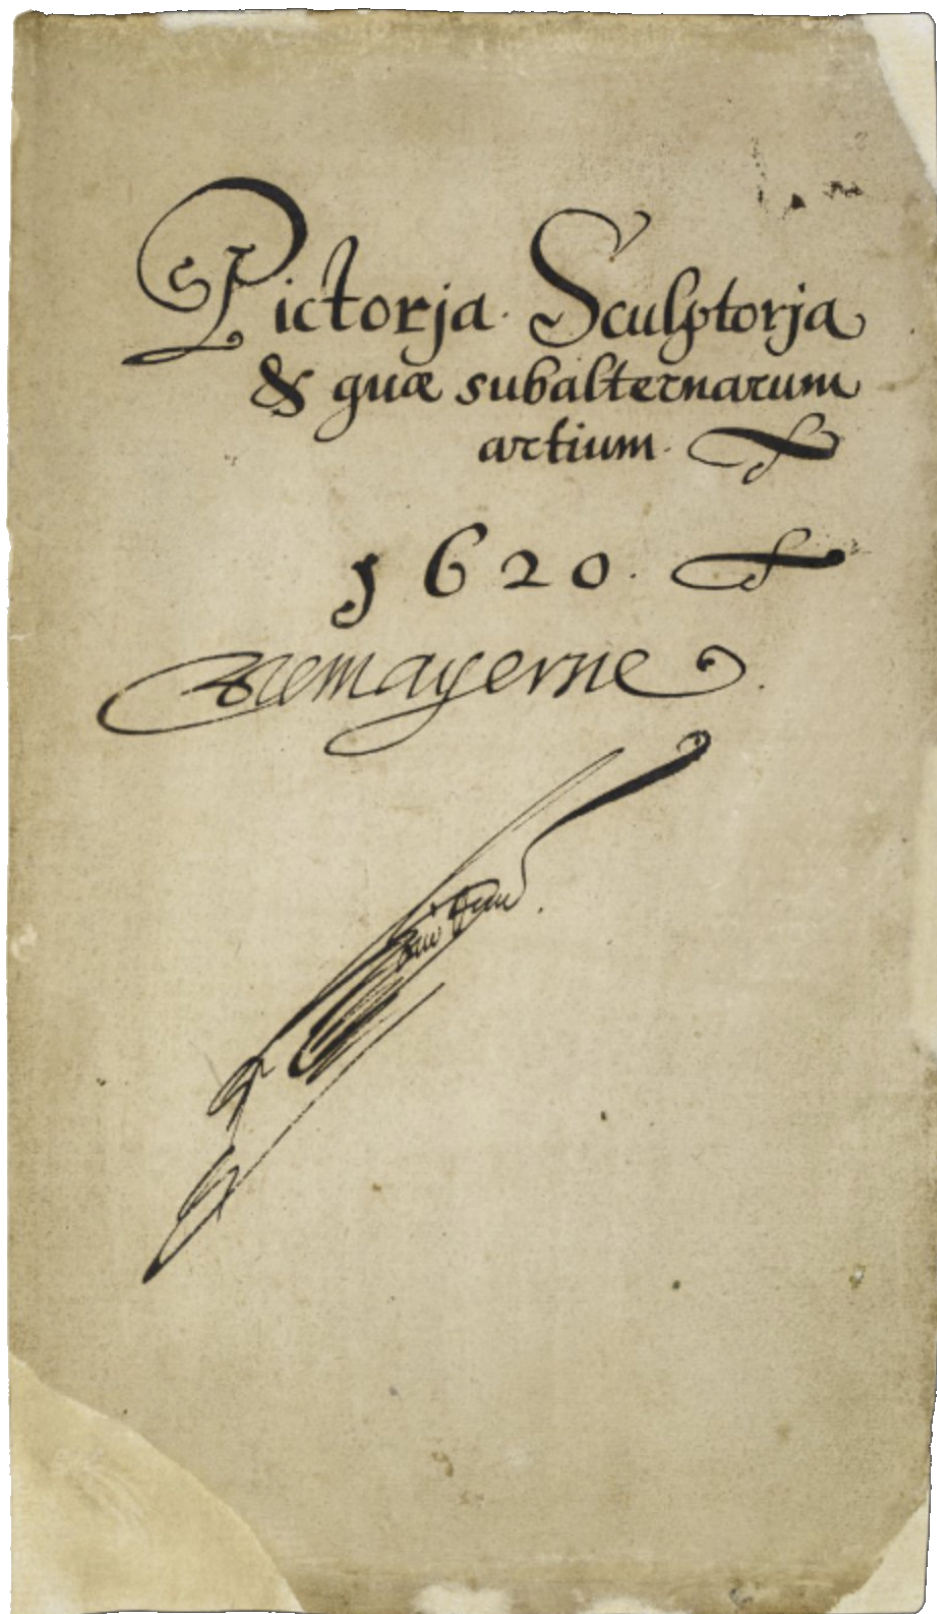 Pictorja. Sculptorja
& quæ subalternarum
artium.
1620.
mayerne.